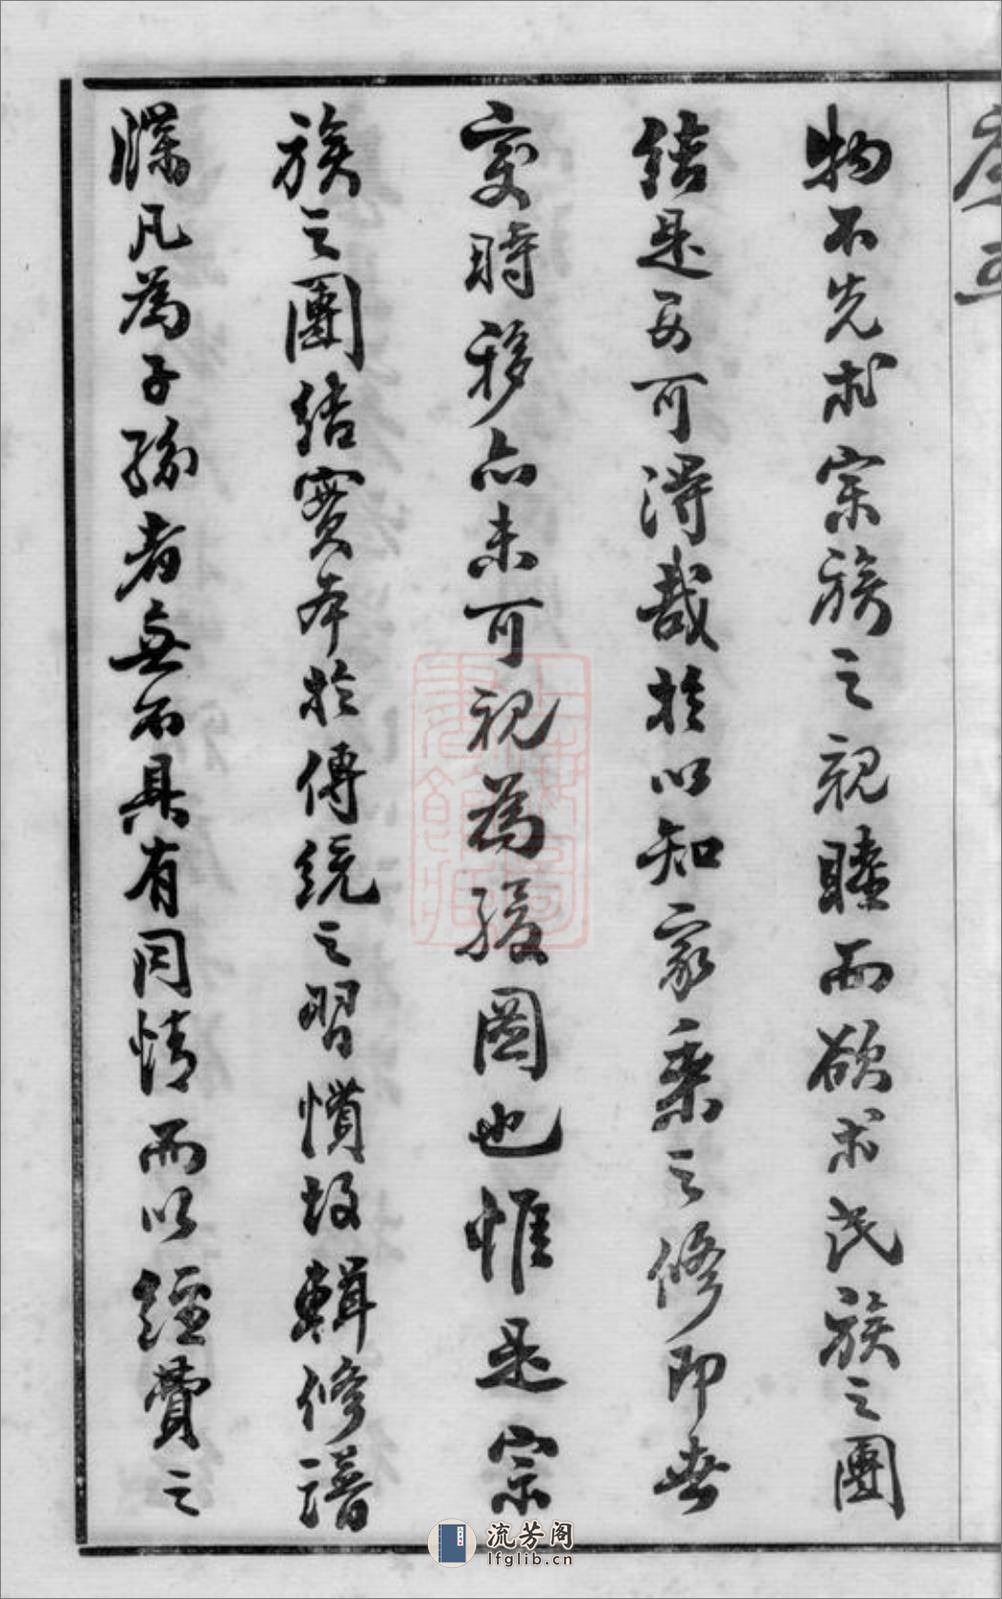 物不先求宗族之親睦而欲求民族之團
結是安可得哉於以知家乘之修即世
變時移亦未可視為緩圖也惟是宗
族之團結實本於傳統之習慣故輯修譜
牒凡為子孫者無不具有同情而以經費之
流芳阁
lfglib.cn